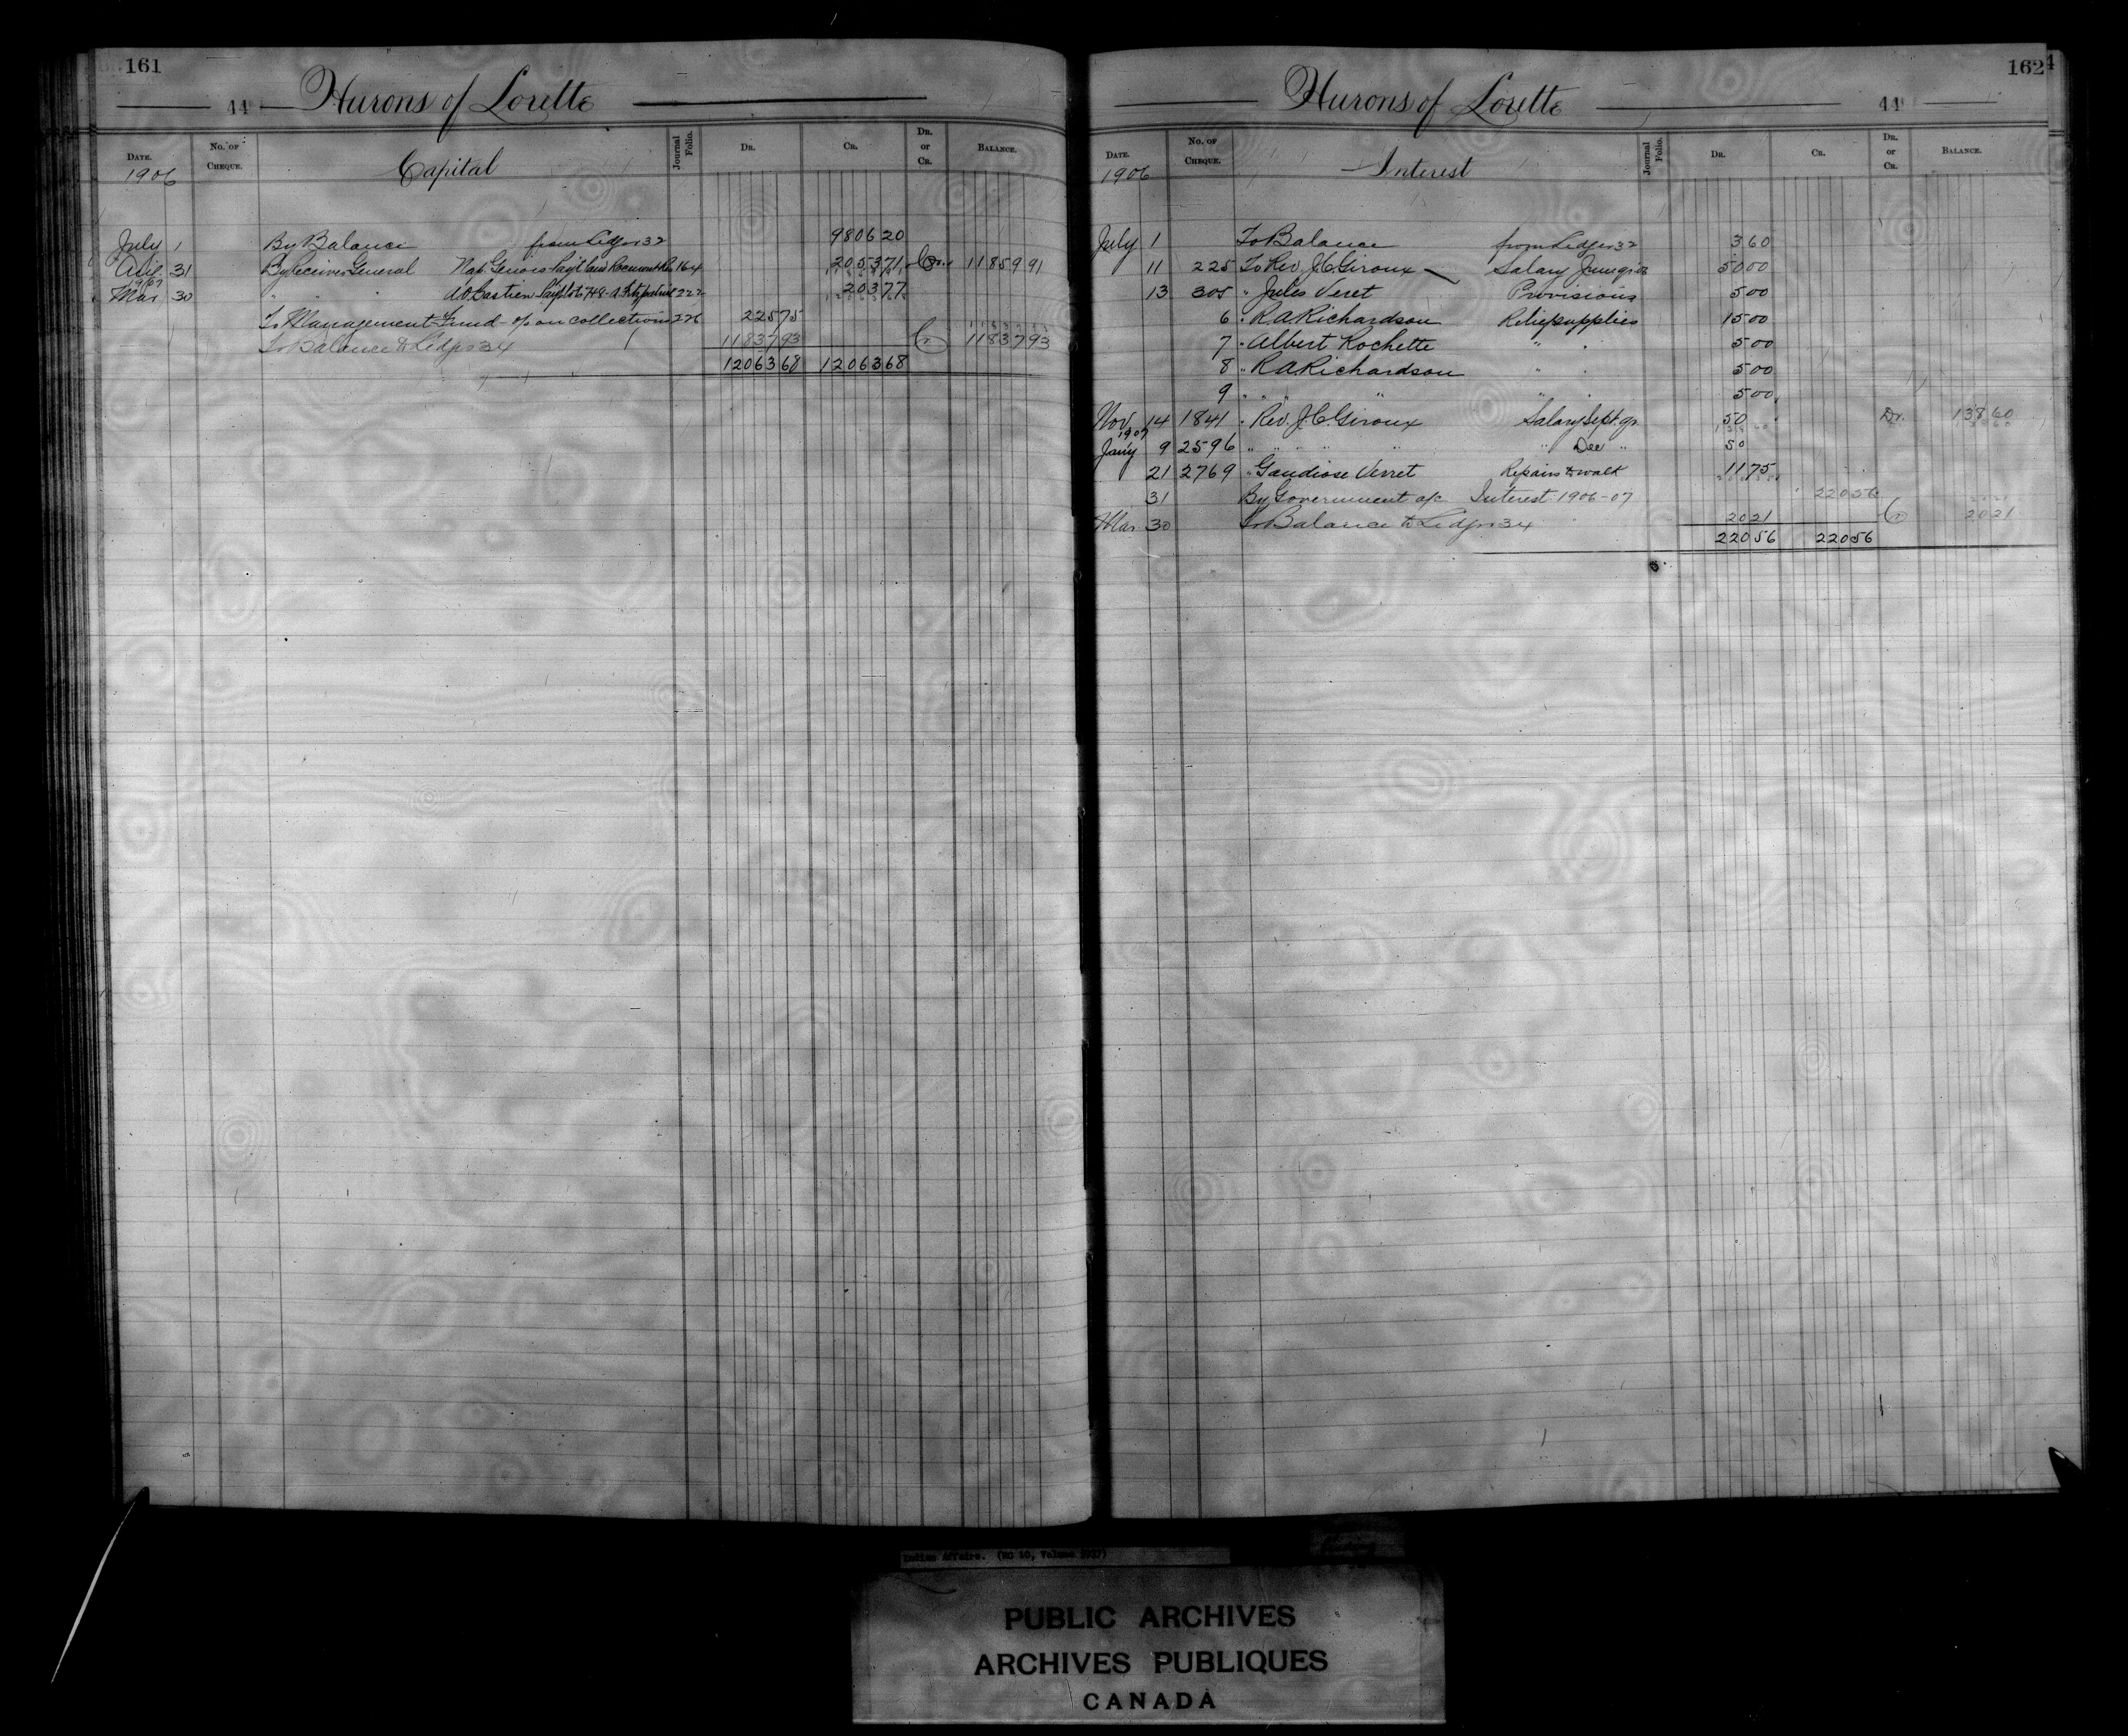 161
44 Hurons of Lorette
Date. No. of Cheque. Capital Journal Folio. Dr. Cr. Dr. or Cr. Balance.
1906
July 1 By Balance from Ledger 32 9806 20
Aug. 31 By Receiver General Nap. Genois Pay't Rocmont Res 164 2053 71 Cr. 11859 91
1907
Mar. 30 " " A.O. Bastien 222 203 77
To Management Fund - % on collections 226 225 75
To Balance to Ledger 34 11837 93 Cr 11837 93
12063 68 12063 68
162
Hurons of Lorette 44
Date. No. of Cheque. Interest Journal Folio. Dr. Cr. Dr. or Cr. Balance.
1906
July 1 To Balance from Ledger 32 3 60
11 225 To Rev. J.C. Giroux Salary June qr 50 00
13 305 " Jules Veret Provisions 5 00
6 " R.A. Richardson Relief supplies 15 00
7 " Albert Rochette " " 5 00
8 " R.A. Richardson " " 5 00
9 " " " " " 5 00
Nov. 14 1841 " Rev. J.C. Giroux Salary Sept. qr 50 Dr. 138 60
1907
Jan'y 9 2596 " " " " " Dec " 50
21 2769 " Gaudiose Verret Repairs to walk 11 75
31 By Government a/c Interest 1906-07 220 56
Mar. 30 To Balance to Ledger 34 20 21 Cr 20 21
220 56 220 56
Indian Affairs. (RG 10, Volume
PUBLIC ARCHIVES
ARCHIVES PUBLIQUES
CANADA